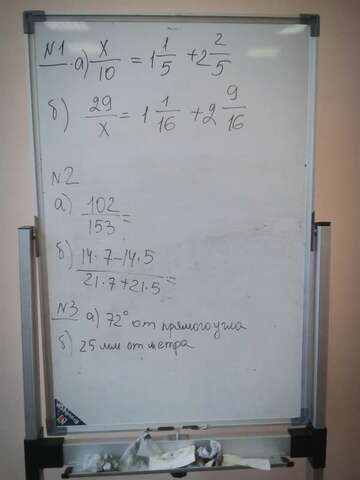 №1. а) x/10 = 1 1/5 + 2 2/5
б) 29/x = 1 1/16 + 2 9/16
№2
а) 102/153 =
б) 14·7-14·5/21·7+21·5 =
№3 а) 72° от прямого угла
б) 25 мм от метра